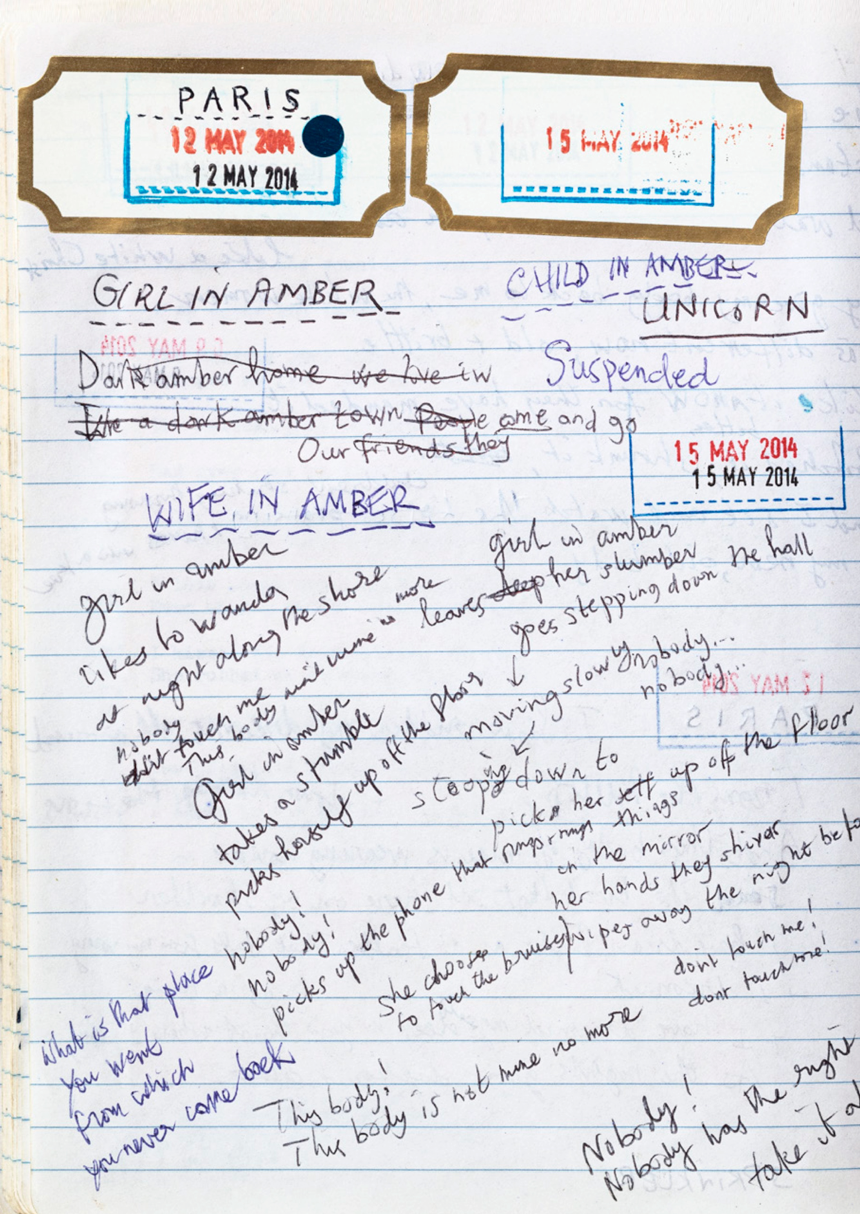 PARIS
12 MAY 2014
12 MAY 2014
15 MAY 2014
GIRL IN AMBER
CHILD IN AMBER
UNICORN
Suspended
Dark amber home we live in
Like a dark amber town People come and go
Our friends they
15 MAY 2014
15 MAY 2014
WIFE IN AMBER
girl in amber
likes to wanda
at night along the shore
nobody
dont touch me
This body aint mine no more
girl in amber
leaves deep her slumber
goes stepping down the hall
moving slowly nobody...
nobody...
Girl in amber
takes a stumble
picks herself up off the floor
stoops down to
picks her self up off the floor
nobody!
nobody!
picks up the phone that rings rings things
in the mirror
her hands they shiver
She chooses
to touch the bruises/wipes away the night befo
dont touch me!
dont touch me!
What is that place
you went
from which
you never come back
This body!
This body is not mine no more
Nobody!
Nobody has the right
take it a